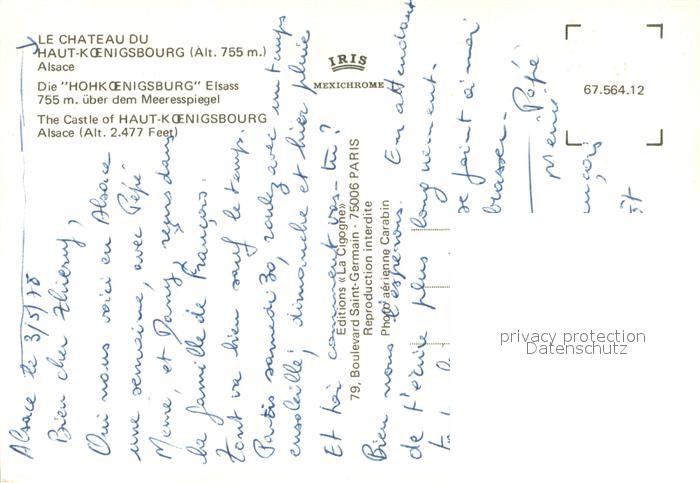 LE CHATEAU DU
HAUT-KŒNIGSBOURG (Alt. 755 m.)
Alsace
Die "HOHKŒNIGSBURG" Elsass
755 m. über dem Meeresspiegel
The Castle of HAUT-KŒNIGSBOURG
Alsace (Alt. 2.477 Feet)
IRIS
MEXICHROME
67.564.12
Editions « La Cigogne »
79, Boulevard Saint-Germain - 75006 PARIS
Reproduction interdite
Photo aérienne Carabin
Alsace le 3/5/78
Bien cher Thierry,
Oui nous voici en Alsace
une semaine, avec Pépé
Mémé, et Dany, reçus dans
la famille de François.
Tout va bien sauf le temps.
Partis samedi 30, roulez avec un temps
ensoleillé, dimanche et hier pluie
Et toi comment vas-tu?
Bien nous l'espérons. En attendant
de t'écrire plus longuement.
se joint à moi
brasser.
Pépé
Mémé
privacy protection
Datenschutz